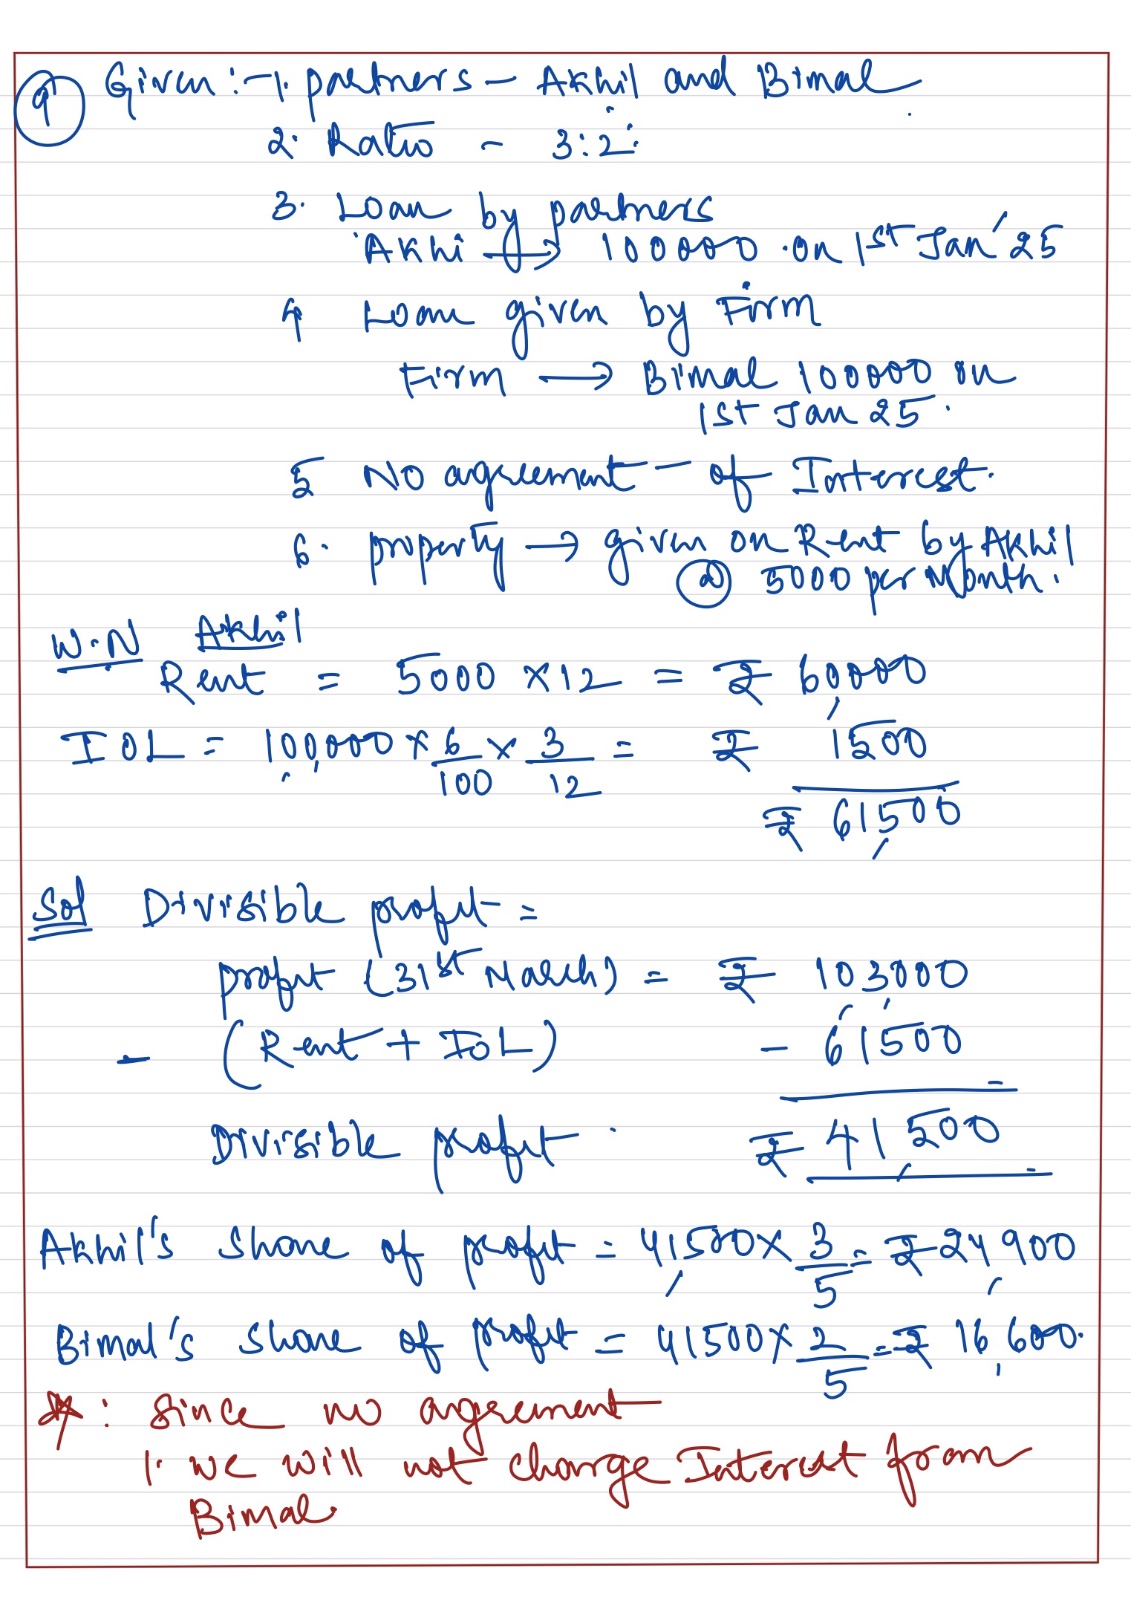 9 Given :- 1. partners - Akhil and Bimal
2. Ratio - 3:2
3. Loan by partners
Akhi → 100000 on 1st Jan' 25
4 Loan given by Firm
Firm → Bimal 100000 on
1st Jan 25.
5 No agreement - of Interest.
6. property → given on Rent by Akhil
@ 5000 per Month.
W.N Akhil
Rent = 5000 × 12 = ₹ 60,000
IOL = 100,000 × 6/100 × 3/12 = ₹ 1500
₹ 61,500
Sol Divisible profit =
profit (31st March) = ₹ 103000
- (Rent + IOL) - 61500
Divisible profit ₹ 41,500
Akhil's share of profit = 41,500 × 3/5 = ₹ 24,900
Bimal's share of profit = 41500 × 2/5 = ₹ 16,600.
* : Since no agreement
1. we will not charge Interest from
Bimal.